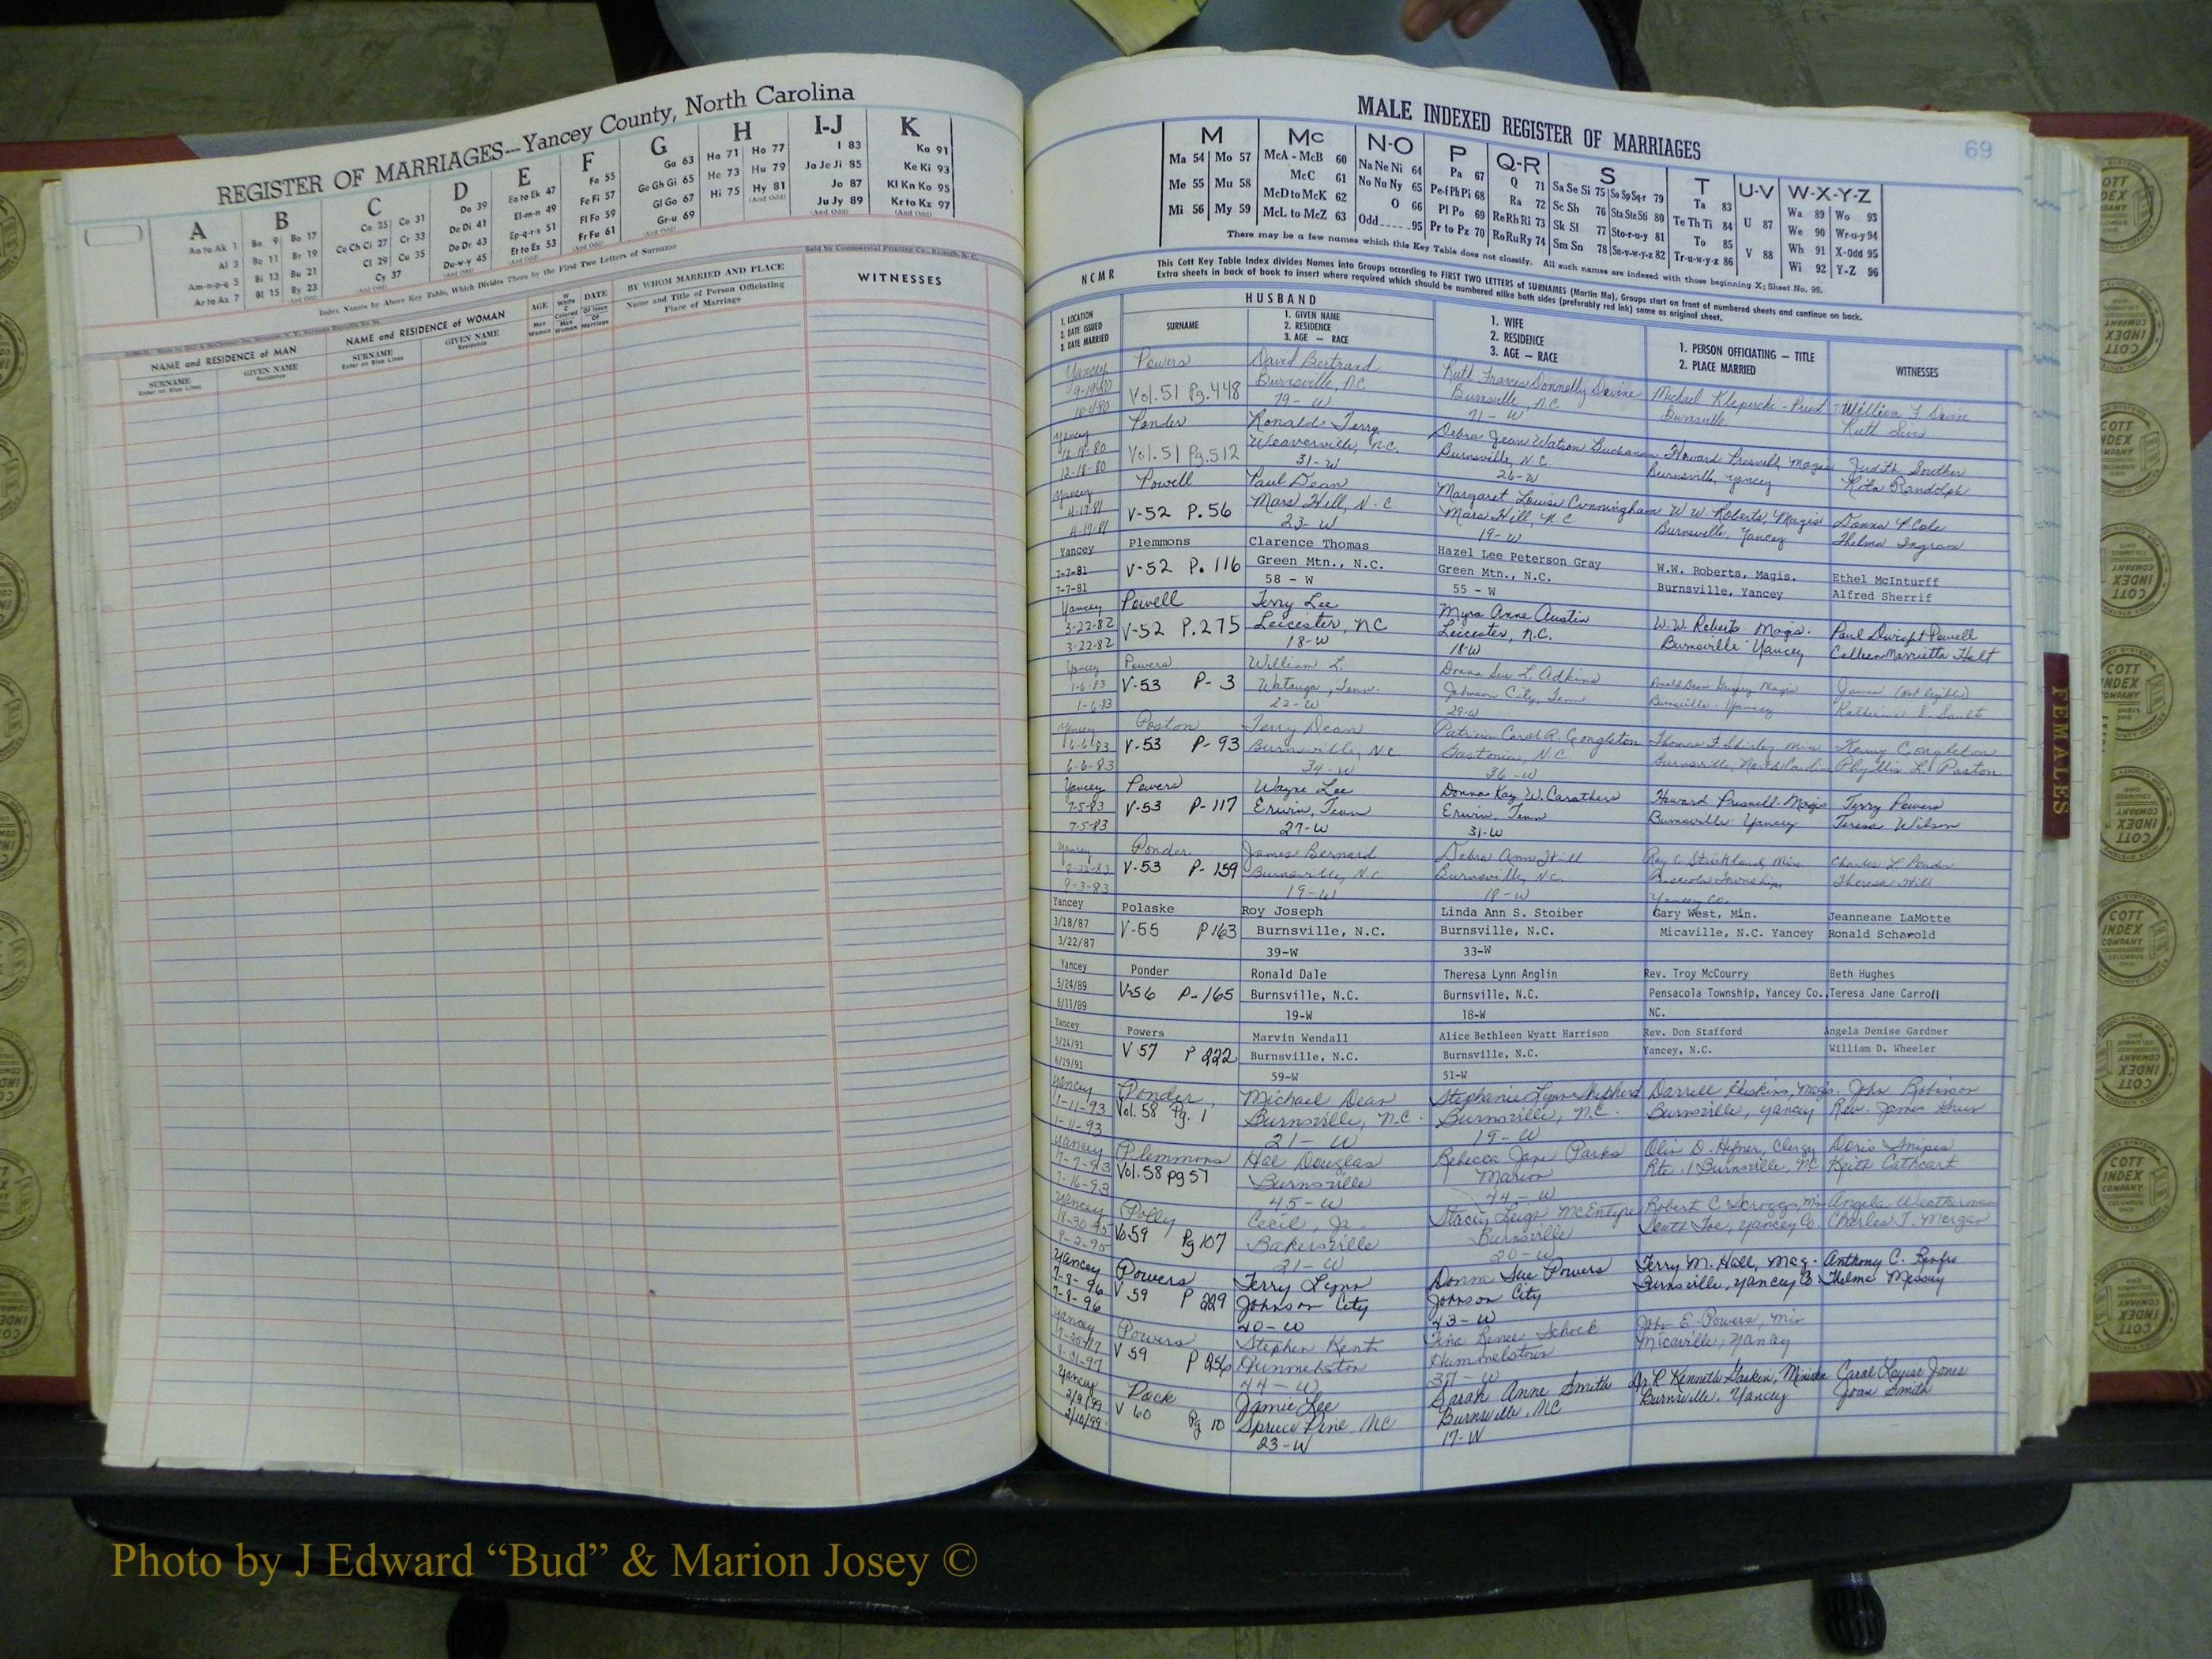 REGISTER OF MARRIAGES--Yancey County, North Carolina
A B C D E F G H I-J K
Aa to Ak 1 Ba 9 Bo 17 Ca 25 Co 31 Da 39 Ea to Ek 47 Fa 55 Ga 63 Ha 71 Ho 77 I 83 Ka 91
Al 3 Be 11 Br 19 Ce Ch Ci 27 Cr 33 De Di 41 El-m-n 49 Fe Fi 57 Ge Gh Gi 65 He 73 Hu 79 Ja Je Ji 85 Ke Ki 93
Am-n-p-q 5 Bi 13 Bu 21 Cl 29 Cu 35 Do Dr 43 Ep-q-r-s 51 Fl Fo 59 Gl Go 67 Hi 75 Hy 81 Jo 87 Kl Kn Ko 95
Ar to Az 7 Bl 15 By 23 Cy 37 Du-w-y 45 Et to Ex 53 Fr Fu 61 Gr-u 69 (And Odd) Ju Jy 89 Kr to Kz 97
Index Names by Above Key Table, Which Divides Them by the First Two Letters of Surname
Sold by Commercial Printing Co., Raleigh, N. C.
NAME and RESIDENCE of MAN
SURNAME
Enter on Blue Lines
GIVEN NAME
Residence
NAME and RESIDENCE of WOMAN
SURNAME
Enter on Blue Lines
GIVEN NAME
Residence
AGE
Man
Woman
W White
C Colored
Man
Woman
DATE
Of Issue
Of Marriage
BY WHOM MARRIED AND PLACE
Name and Title of Person Officiating
Place of Marriage
WITNESSES
MALE INDEXED REGISTER OF MARRIAGES
69
M Mc N-O P Q-R S T U-V W-X-Y-Z
Ma 54 Mo 57 McA - McB 60 Na Ne Ni 64 Pa 67 Q 71 Sa Se Si 75 So Sp Sq-r 79 Ta 83 U 87 Wa 89 Wo 93
Me 55 Mu 58 McC 61 No Nu Ny 65 Pe-f Ph Pi 68 Ra 72 Sc Sh 76 Sta Ste Sti 80 Te Th Ti 84 We 90 Wr-u-y 94
McD to McK 62 O 66 Pl Po 69 Re Rh Ri 73 Sk Sl 77 Sto-r-u-y 81 To 85 V 88 Wh 91 X-Odd 95
Mi 56 My 59 McL to McZ 63 Odd 95 Pr to Pz 70 Ro Ru Ry 74 Sm Sn 78 Su-v-w-y-z 82 Tr-u-w-y-z 86 Wi 92 Y-Z 96
There may be a few names which this Key Table does not classify. All such names are indexed with those beginning X; Sheet No. 95.
NCMR
This Cott Key Table Index divides Names into Groups according to FIRST TWO LETTERS of SURNAMES (Martin Ma), Groups start on front of numbered sheets and continue on back.
Extra sheets in back of book to insert where required which should be numbered alike both sides (preferably red ink) same as original sheet.
1. LOCATION
2. DATE ISSUED
3. DATE MARRIED
HUSBAND
SURNAME
1. GIVEN NAME
2. RESIDENCE
3. AGE — RACE
1. WIFE
2. RESIDENCE
3. AGE — RACE
1. PERSON OFFICIATING — TITLE
2. PLACE MARRIED
WITNESSES
Yancey Powers David Bertrand Ruth Frances Donnelly Devine Michael - Priest William F Devine
Vol.51 Pg.448 Burnsville, NC Burnsville, N.C. Burnsville Ruth Sims
10-4-80 79-W 71-W
Yancey Ponder Ronald Terry Debra Jean Watson Buchanan Howard Presnell, Magis Judith Souther
12-18-80 Vol.51 Pg.512 Weaverville, N.C. Burnsville, N.C. Burnsville, Yancey Rita Randolph
12-18-80 31-W 26-W
Yancey Powell Paul Dean Margaret Louise Cunningham W W Roberts, Magis Donna P. Cole
4-17-81 V-52 P.56 Mars Hill, N.C Mars Hill, N.C Burnsville, Yancey Thelma Ingram
4-19-81 23-W 19-W
Yancey Plemmons Clarence Thomas Hazel Lee Peterson Gray W.W. Roberts, Magis. Ethel McInturff
7-7-81 V-52 P. 116 Green Mtn., N.C. Green Mtn., N.C. Burnsville, Yancey Alfred Sherrif
7-7-81 58 - W 55 - W
Yancey Powell Terry Lee Myra Anne Austin W.W. Roberts Magis. Paul Dwight Powell
3-22-82 V-52 P.275 Leicester, NC Leicester, N.C. Burnsville Yancey Colleen Marrietta Holt
3-22-82 18-W 18-W
Yancey Powers William L. Donna Sue L. Adkins Magis James (Not legible)
1-6-83 V-53 P-3 Watauga, Tenn. Johnson City, Tenn Burnsville Yancey Katherine
1-6-83 22-W 29-W
Yancey Poston Terry Dean Patricia Carol R. Congleton Thomas F Shirley Min Kenny Congleton
6-6-83 V-53 P-93 Burnsville, N.C Gastonia, N.C. Burnsville, North Carolina Phyllis L. Poston
6-6-83 34-W 36-W
Yancey Powers Wayne Lee Donna Kay W. Carathers Howard Presnell-Magis Terry Powers
7-5-83 V-53 P-117 Erwin, Tenn Erwin, Tenn Burnsville Yancey Teresa Wilson
7-5-83 27-W 31-W
Yancey Ponder James Bernard Debra Ann Hill Roy C Strickland, Min Charles L Ponder
V-53 P-159 Burnsville, N.C Burnsville, N.C. Township Theresa Hill
9-3-83 19-W 18-W Yancey Co.
Yancey Polaske Roy Joseph Linda Ann S. Stoiber Gary West, Min. Jeanneane LaMotte
3/18/87 V-55 P163 Burnsville, N.C. Burnsville, N.C. Micaville, N.C. Yancey Ronald Scharold
3/22/87 39-W 33-W
Yancey Ponder Ronald Dale Theresa Lynn Anglin Rev. Troy McCourry Beth Hughes
5/24/89 V-56 P-165 Burnsville, N.C. Burnsville, N.C. Pensacola Township, Yancey Co. Teresa Jane Carroll
6/11/89 19-W 18-W NC.
Yancey Powers Marvin Wendall Alice Bethleen Wyatt Harrison Rev. Don Stafford Angela Denise Gardner
5/24/91 V 57 P 222 Burnsville, N.C. Burnsville, N.C. Yancey, N.C. William D. Wheeler
6/29/91 59-W 51-W
Yancey Ponder, Michael Dean Stephanie Lynn Shepherd Darrell Hoskins, Magis. John Robinson
1-11-93 Vol. 58 Pg. 1 Burnsville, N.C. Burnsville, N.C. Burnsville, Yancey Rev. James Green
1-11-93 21-W 19-W
Yancey Plemmons Hal Douglas Rebecca Jane Parks Olin D. Hefner, Clergy Doris Snipes
7-7-93 Vol.58 pg 57 Burnsville Marion Rte. 1 Burnsville, NC Keith Cathcart
7-16-93 45-W 44-W
Yancey Polly Cecil, Jr. Stacey Leigh McEntyre Robert C Scroggs, Min Angela Weatherman
Vo 59 Pg 107 Bakersville Burnsville South Toe, Yancey Co. Charles T. Morgan
9-2-95 21-W 20-W
Yancey Powers Terry Lynn Donna Sue Powers Terry M. Hall, Mag. Anthony C. Renfro
7-8-96 V 59 P 229 Johnson City Johnson City Burnsville, Yancey Co Thelma
7-8-96 40-W 43-W
Yancey Powers Stephen Kent Tina Renee Schock John E. Powers, Min
V 59 P 256 Hummelstown Micaville, Yancey
8-31-97 44-W 37-W
Yancey Pock Jamie Lee Sarah Anne Smith Dr. R Kenneth, Minister Carol Louise Jones
2/9/99 V 60 Pg 10 Spruce Pine NC Burnsville, NC Burnsville, Yancey Joan Smith
2/10/99 23-W 17-W
FEMALES
COTT INDEX COMPANY COLUMBUS OHIO
Photo by J Edward “Bud” & Marion Josey ©